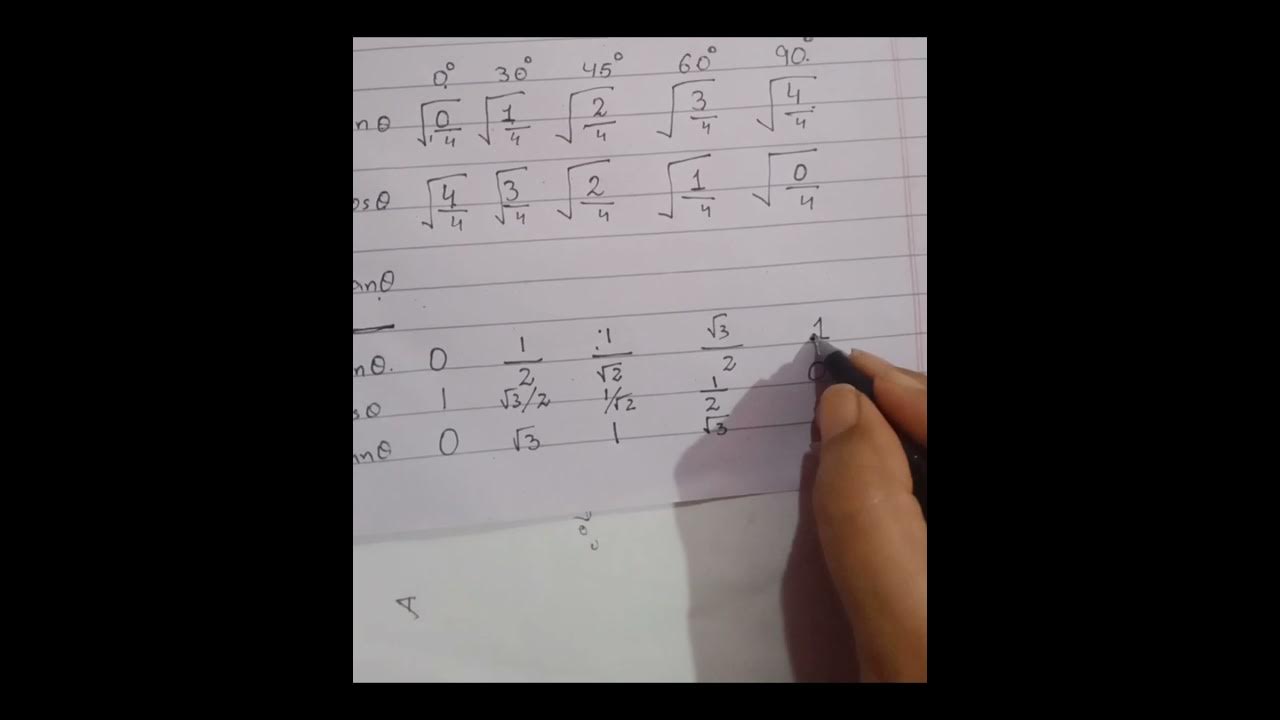 0° 30° 45° 60° 90°
nθ √0/4 √1/4 √2/4 √3/4 √4/4
osθ √4/4 √3/4 √2/4 √1/4 √0/4
anθ
nθ. 0 1/2 1/√2 √3/2 1
sθ 1 √3/2 1/√2 1/2 0
anθ 0 √3 1 √3